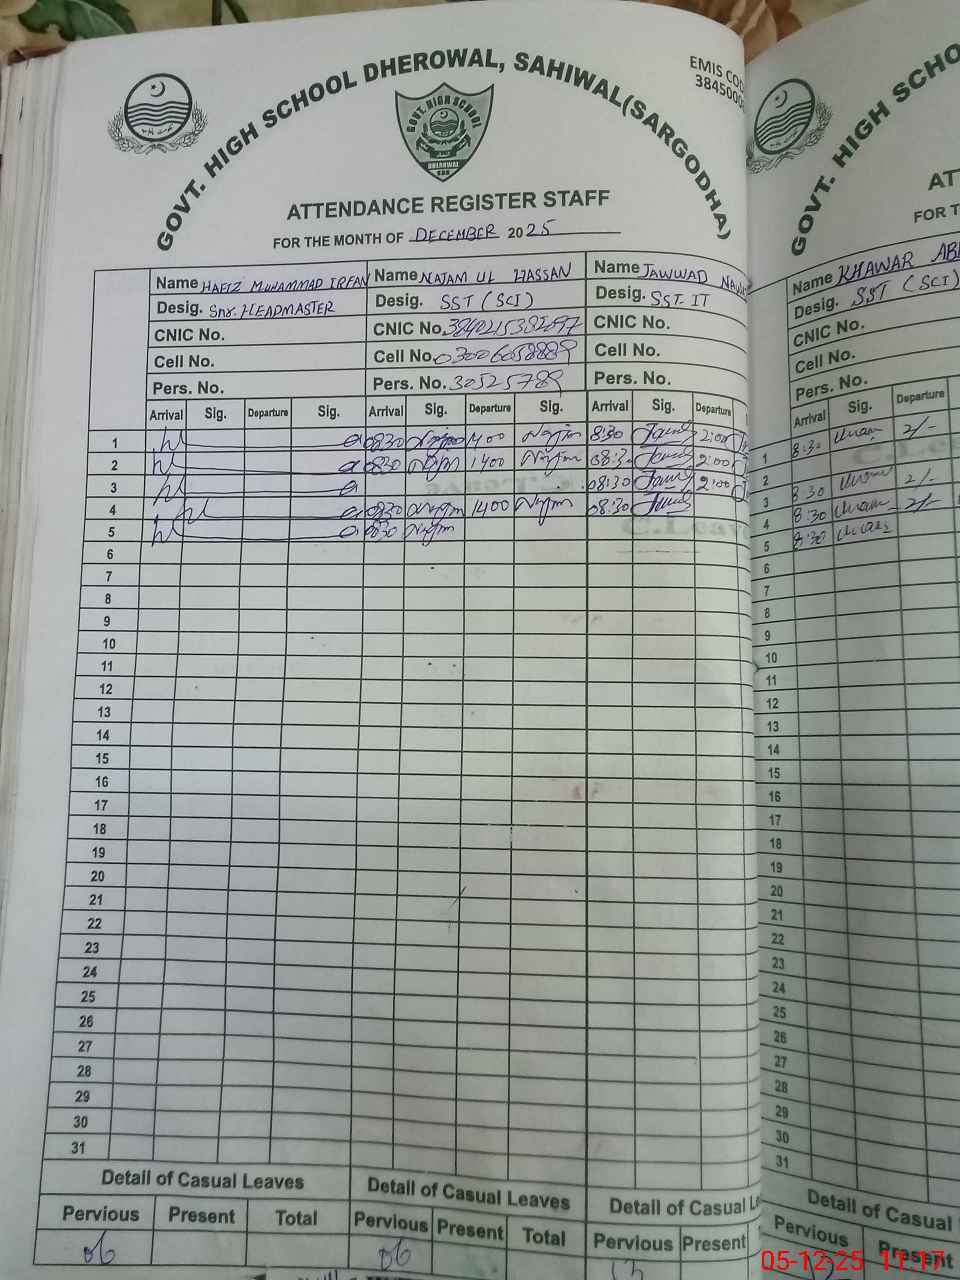 GOVT. HIGH SCHOOL DHEROWAL, SAHIWAL(SARGODHA)
EMIS COD
3845000
GOVT. HIGH SCHOOL
DHEROWAL
SGD
ATTENDANCE REGISTER STAFF
FOR THE MONTH OF DECEMBER 2025
Name HAFIZ MUHAMMAD IRFAN Name NAJAM UL HASSAN Name JAWWAD
Desig. Snr. HEADMASTER Desig. SST (SCI) Desig. SST IT
CNIC No. CNIC No. CNIC No.
Cell No. Cell No. 03006058889 Cell No.
Pers. No. Pers. No. 30525789 Pers. No.
Arrival Sig. Departure Sig. Arrival Sig. Departure Sig. Arrival Sig. Departure
1 0830 Najm 1400 Najm 8:30 2:00
2 0830 Najm 1400 Najm 08:3 2:00
3 08:30 2:00
4 0830 Najm 1400 Najm 08:30
5 0830 Najm
6
7
8
9
10
11
12
13
14
15
16
17
18
19
20
21
22
23
24
25
26
27
28
29
30
31
Detail of Casual Leaves Detail of Casual Leaves Detail of Casual
Pervious Present Total Pervious Present Total Pervious Present
06 06 13
GOVT. HIGH SCHO
AT
FOR T
Name KHAWAR AB
Desig. SST (SCI)
CNIC No.
Cell No.
Pers. No.
Arrival Sig. Departure
1 8:30 2/-
2
3 8:30 2/-
4 8:30 2/-
5 8:30
6
7
8
9
10
11
12
13
14
15
16
17
18
19
20
21
22
23
24
25
26
27
28
29
30
31
Detail of Casual
Pervious Present
05-12-25 11:17